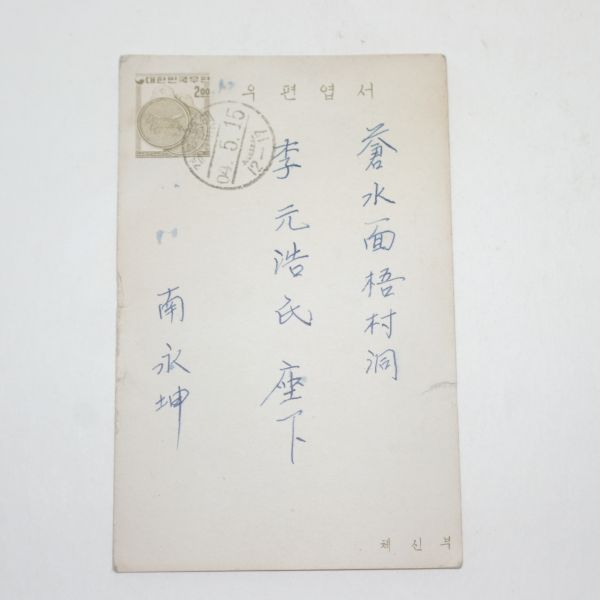 대한민국우표
2.00
우편엽서
64.5.15
12-11
蒼水面梧村洞
李元浩氏 座下
南永坤
체신부